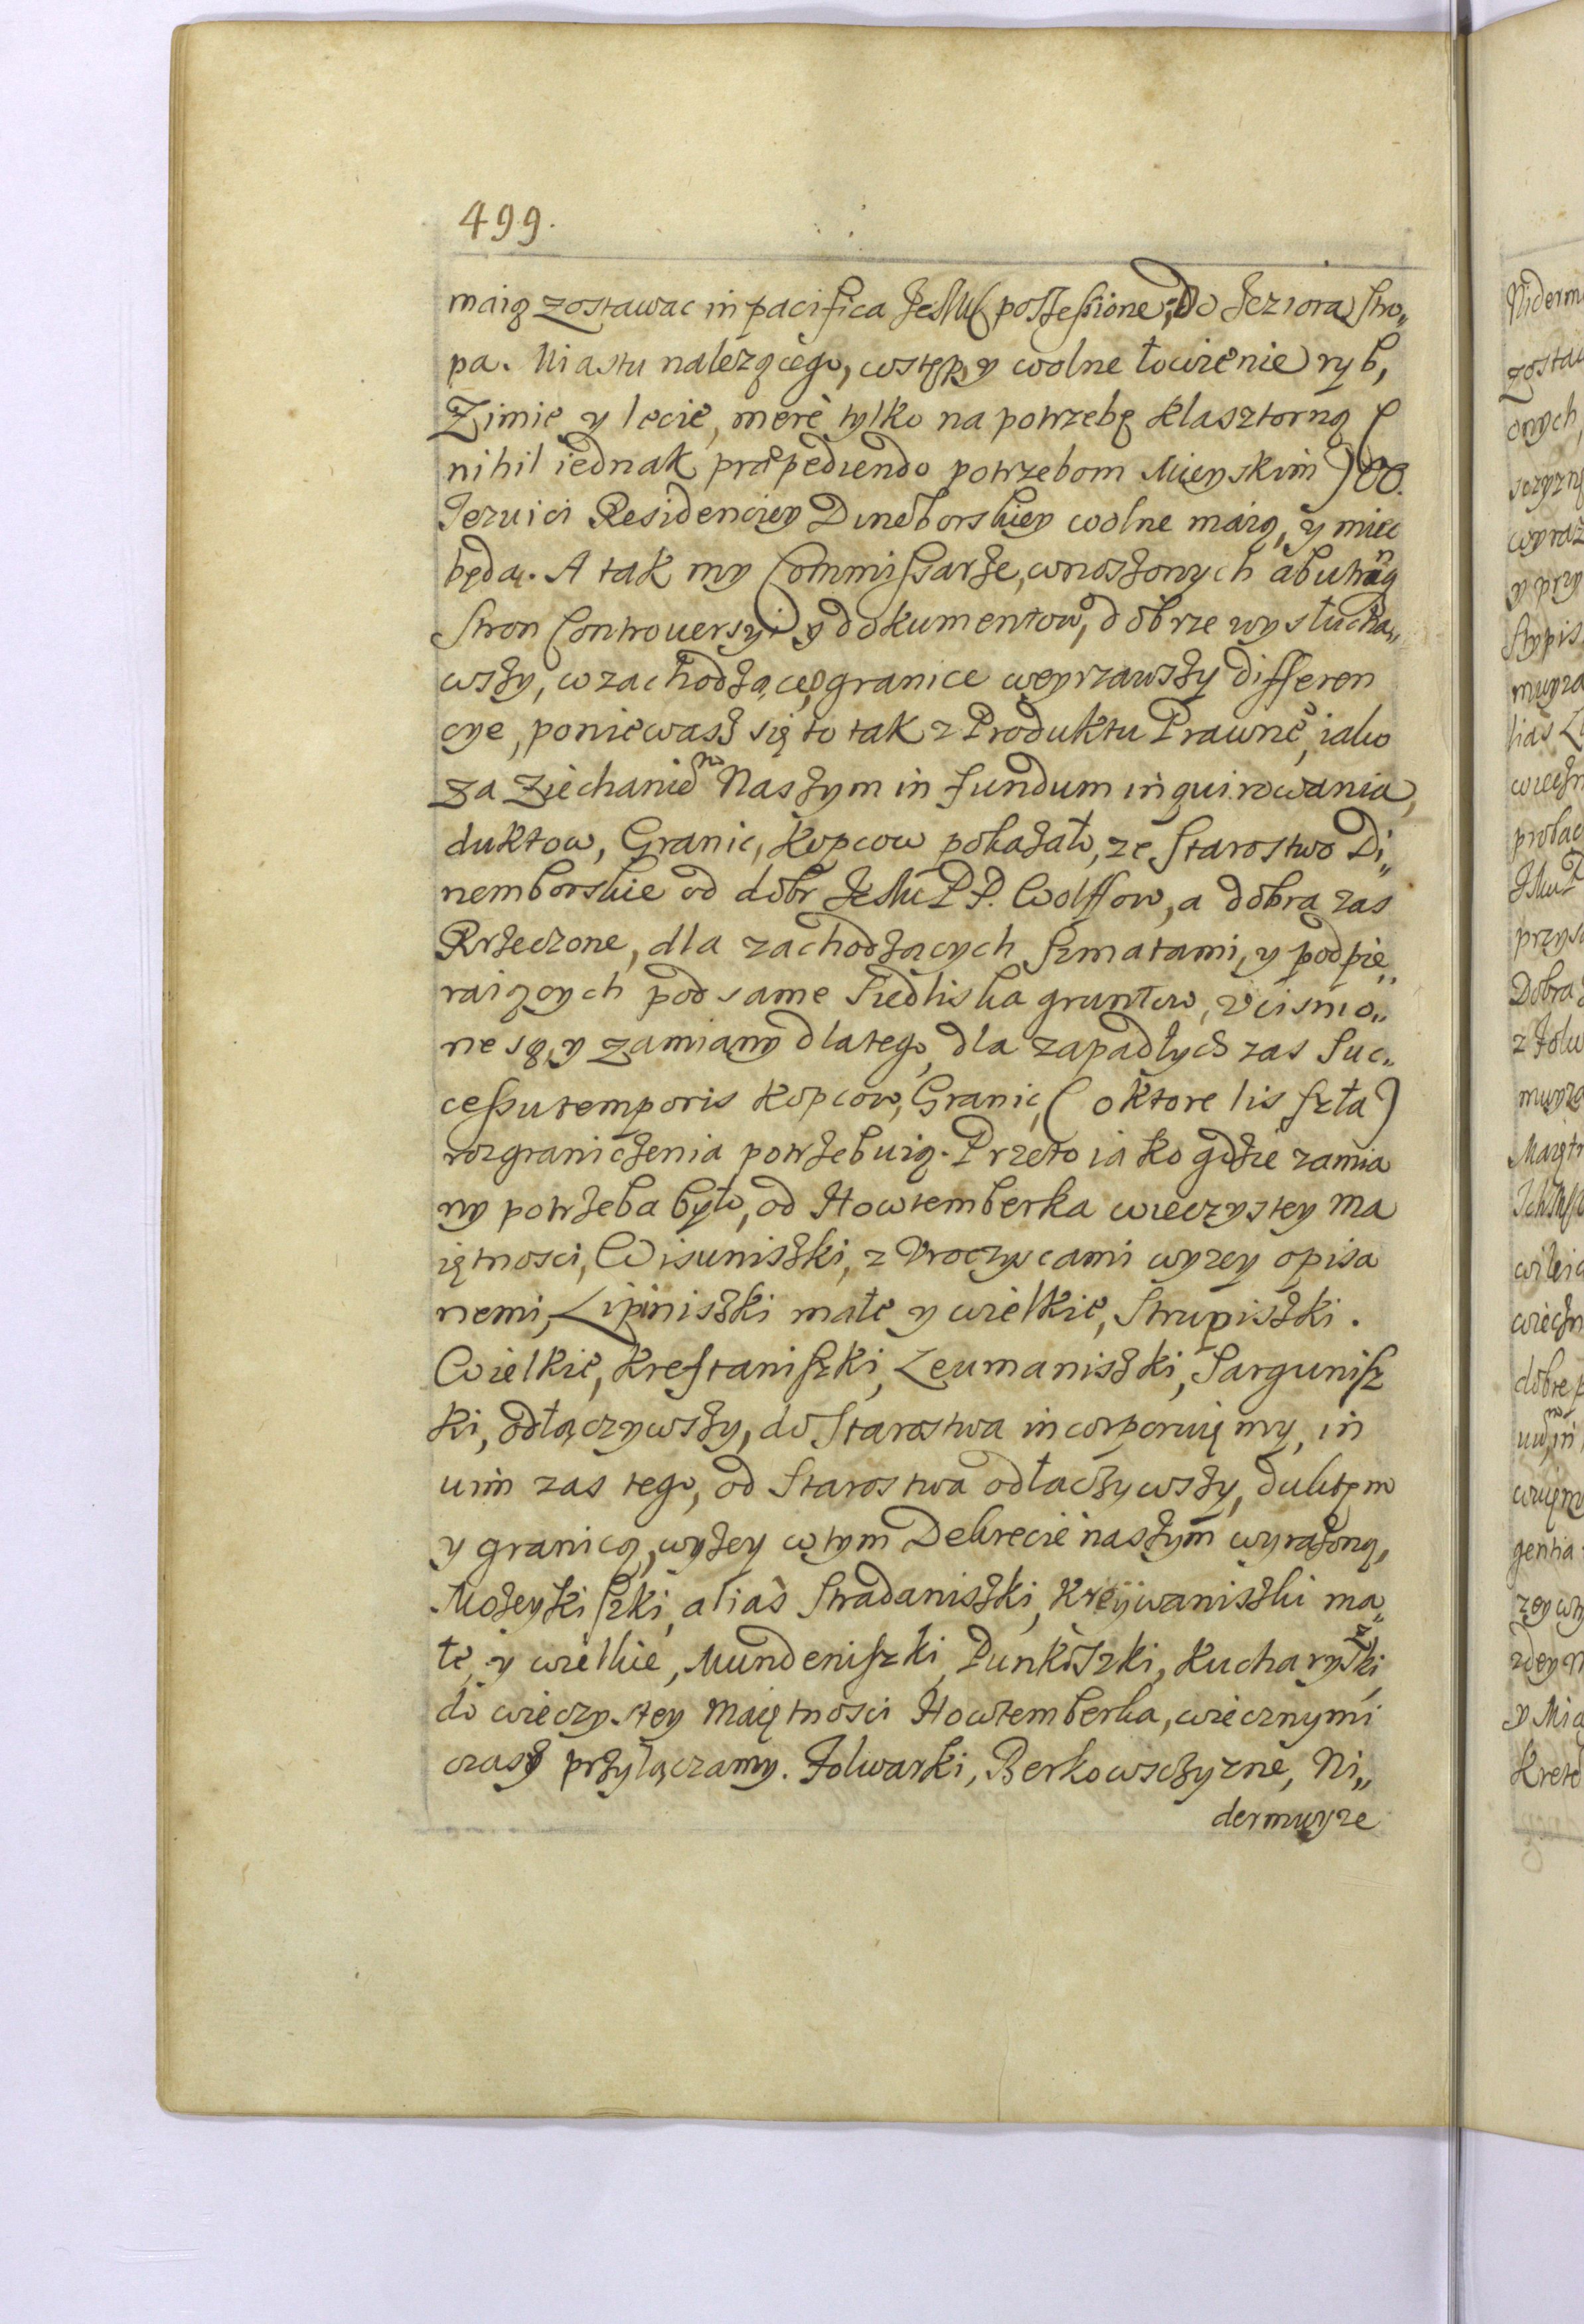 499.
maią zostawac in pacifica possessione; Do Jeziora Stro„
pa. Miastu nalezącego, wstęp y wolne łowienie ryb,
Zimie y lecie, mere tylko na potrzebę klasztorną (
nihil iednak præpediendo potrzebom Mieyskim) OO.
Jezuici Residenciey Dineborskiey wolne maią, y miec
będą. A tak my Commissarze, wnoszonych abutrinq
Stron Controuersyi y dokumentow, dobrze wysłucha„
wszy, w zachodzące granice weyrzawszy differen
cye, poniewasz się to tak z Produktu Prawne, iako
za Ziechaniem Naszym in fundum inquirowania,
duktow, Granic, Kopcow pokazało, ze Starostwo Di„
nemborskie od dobr PP. Wolffow, a dobra zas
Rzeczone, dla zachodzących szmatami, y podpie„
raiących pod same Siedliska gruntow, vcisnio„
ne są, y zamiany dlatego, dla zapadłych zas Suc„
cessu temporis Kopcow, Granic, (o ktore lis szła)
rozgraniczenia potrzebuią. Przeto iako gdzie zamia
ny potrzeba było, od Howtemberka wieczystey Ma
iętnosci, Wisuniszki, z Vroczyscami wyzey opisa
nemi, Lipiniszki małe y wielkie, Strupiszki.
Wielkie, Krestaniszki, Leumaniszki, Sargunisz
ki, odłączywszy, do Starostwa incorporuięmy, in
uim zas tego, od Starostwa odłączywszy, duktęm
y granicą, wyzey w tym Dekrecie naszym wyrazoną,
Mozeykiszki, alias Stradaniszki, Kreywaniszki ma„
łe, y wielkie, Mundeniszki, Punkiszki, Kucharyszki,
do wieczystey Maiętnosci Howtemberka, wiecznymi
czasy przyłączamy. Folwarki, Berkowszczyzne, Ni„
dermuyze